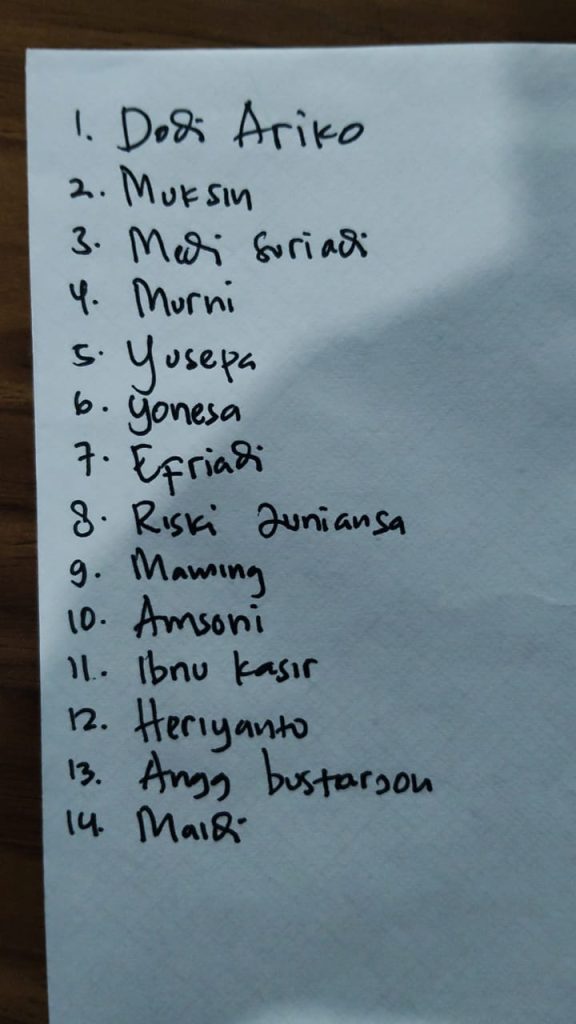 1. Dodi Ariko
2. Muksin
3. Medi Suriadi
4. Murni
5. Yusepa
6. Yonesa
7. Efriadi
8. Riski Juniansa
9. Maming
10. Amsoni
11. Ibnu Kasir
12. Heriyanto
13. Angg
14. Maidi